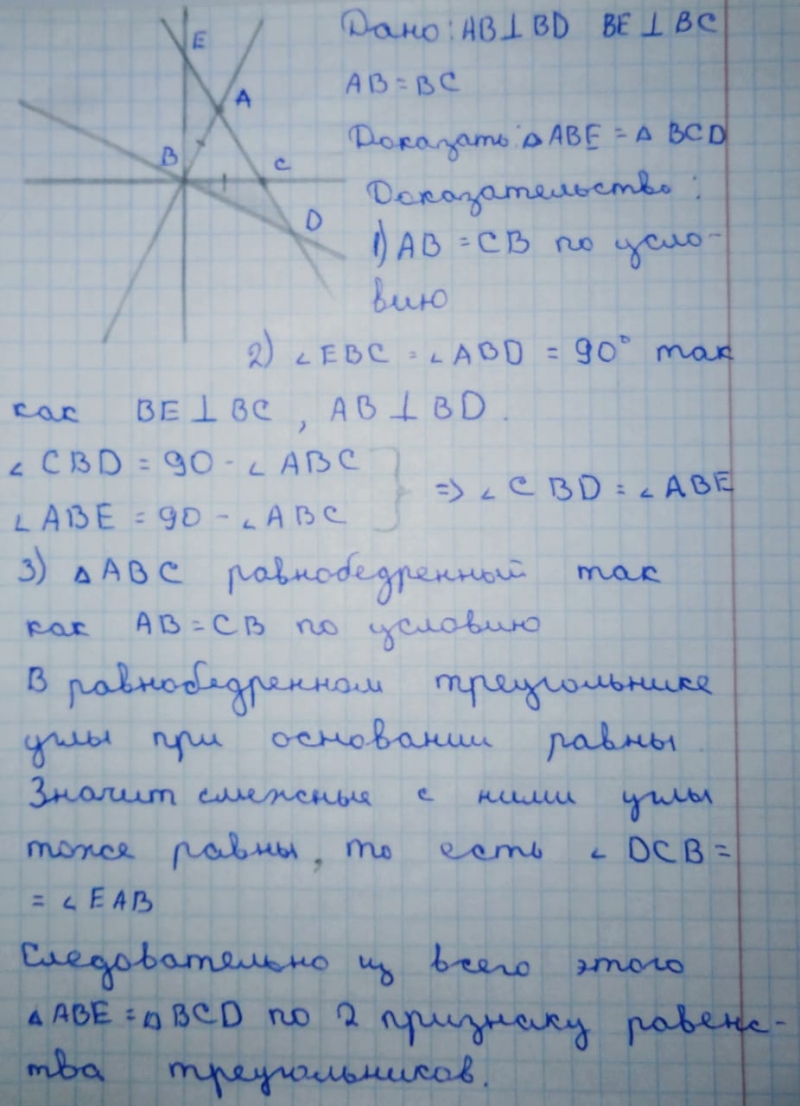 E
A
B
C
D
Дано: AB⊥BD BE⊥BC
AB=BC
Доказать: △ABE=△BCD
Доказательство:
1) AB=CB по усло-
вию
2) ∠EBC=∠ABD=90° так
как BE⊥BC, AB⊥BD.
∠CBD=90-∠ABC
∠ABE=90-∠ABC
⇒∠CBD=∠ABE
3) △ABC равнобедренный так
как AB=CB по условию
В равнобедренном треугольнике
углы при основании равны
Значит смежные с ними углы
тоже равны, то есть ∠DCB=
=∠EAB
Следовательно из всего этого
△ABE=△BCD по 2 признаку равенс-
тва треугольников.